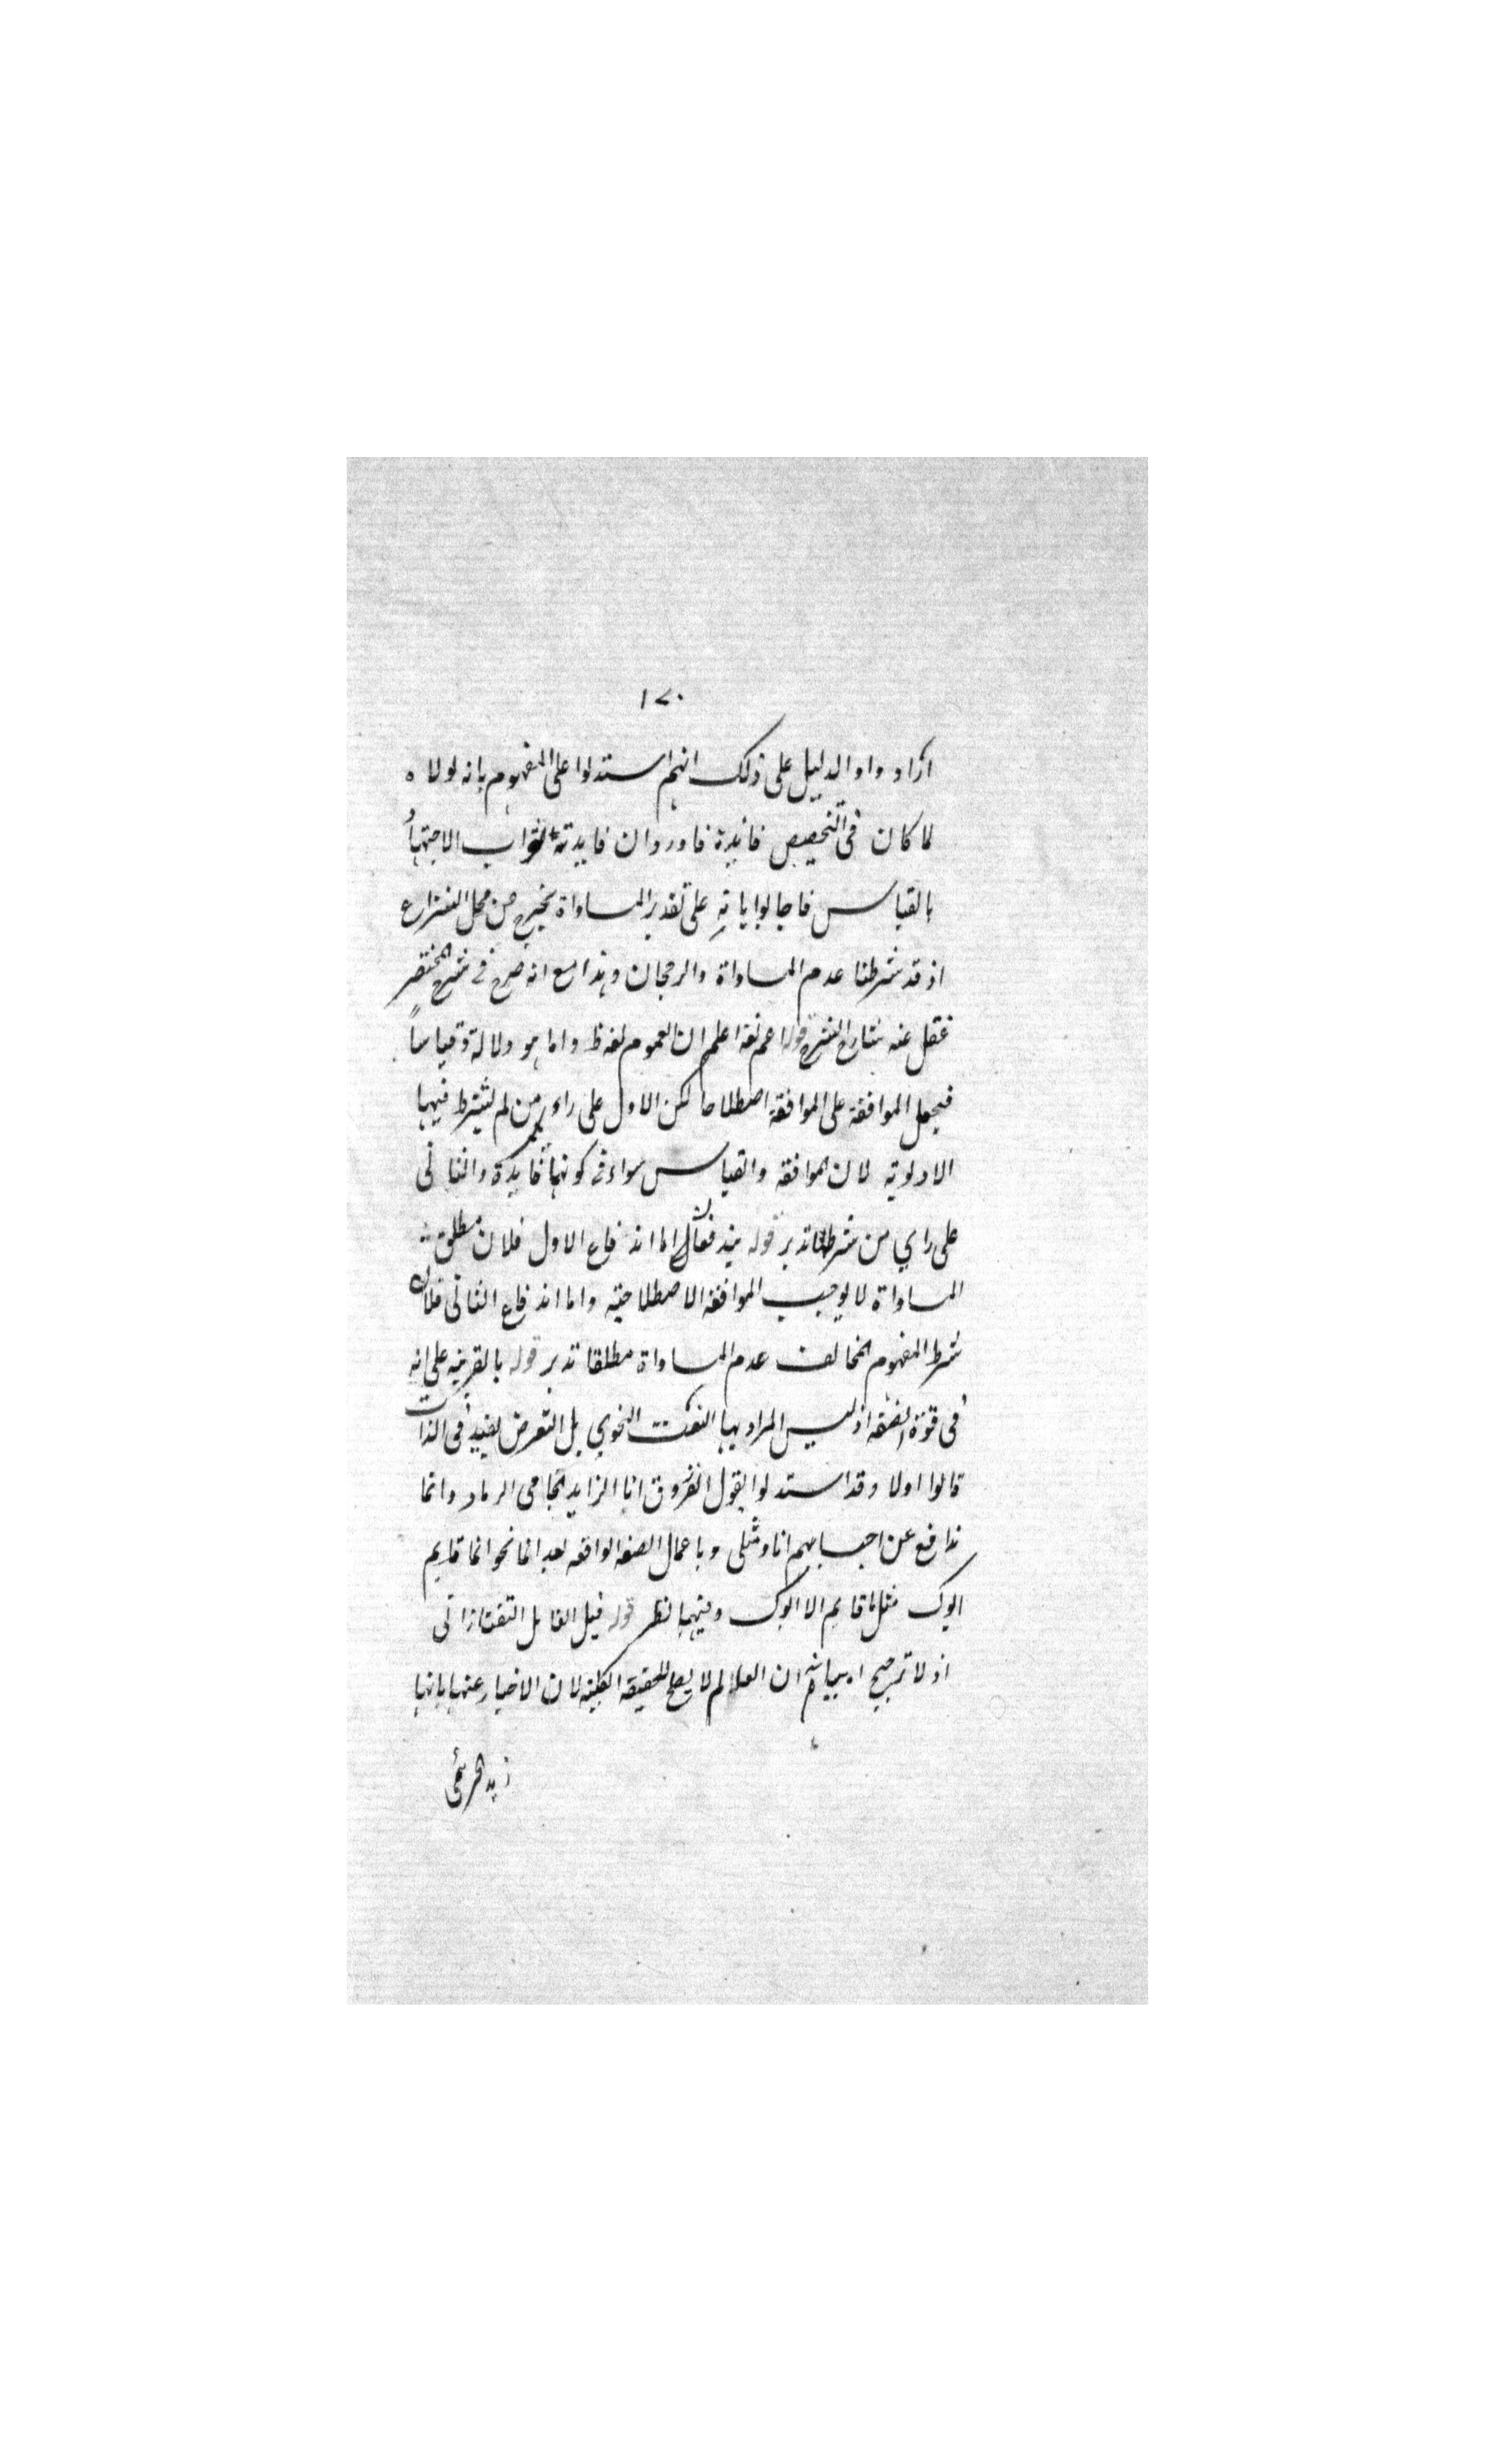 ١٧٠
ازاد واو الدليل على ذلك انهم استدلوا على المفهوم بانه لولاه
لما كان في التخصيص فائدة فاوردوا ان فايدته ثواب الاجتهاد
بالقياس فاجابوا بانه على تقدير المساواة يخرج من محل النزاع
اذ قد شرطنا عدم المساواة والرجحان وهذا مع انه صرح في شرح المختصر
غفل عنه شارح الشرح قوله اعم لغة اعلم ان العموم لفظا واما هو دلالة وقياسا
فيجعل الموافقة على الموافقة اصطلاحا لكن الاول على راي من لم يشترط فيها
الاولوية لان الموافقة والقياس سواء في كونهما فايدة والثاني
على راي من شرطها تدبر قوله يندفعان اما اندفاع الاول فلان مطلق
المساواة لا يوجب الموافقة الاصطلاحية واما اندفاع الثاني فلان
شرط المفهوم المخالف عدم المساواة مطلقا تدبر قوله بالقرينه على انه
في قوة الصفة اذ ليس المراد بها النعت النحوي بل التعرض لقيد في الذات
قالوا اولا وقد استدلوا بقول الفرزوق انا الزايد الحامي الرماد وانما
ندافع عن احسابهم انا ومثلي وباعمال الصفه الواقعه بعد انما نحو انما قايم
ابوك مثل ما قايم الا ابوك وفيهما نظر قوله قيل القايل التفتازاني
اذ لا ترجيح اه بيانه ان العالم لا يصلح للحقيقه الكلية لان الاخبار عنها بانها
زيد